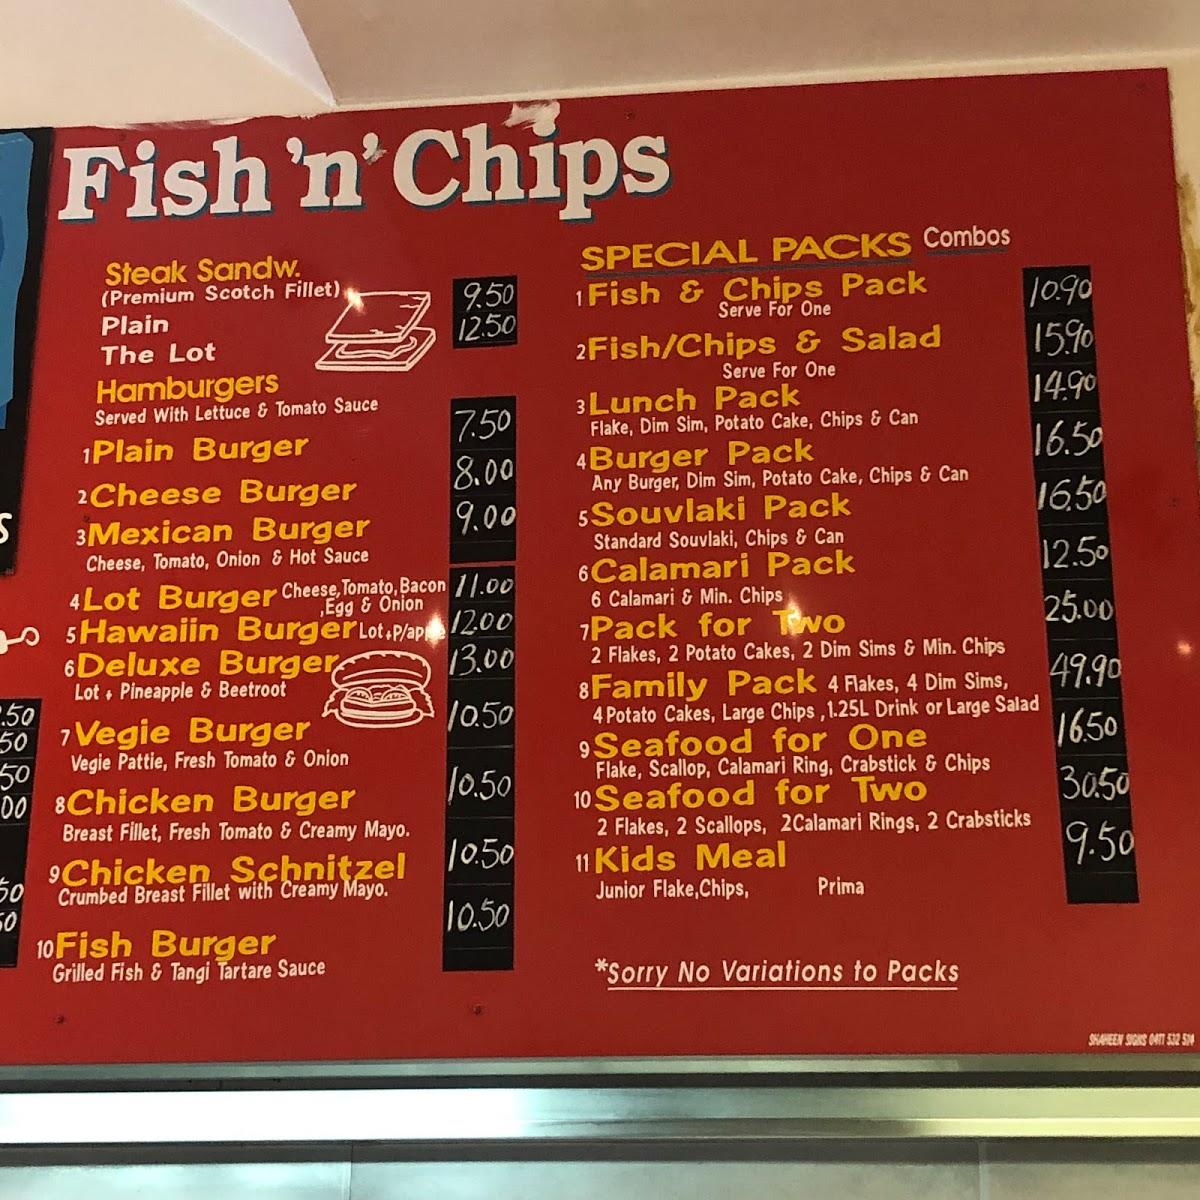 Fish 'n' Chips
Steak Sandw.
(Premium Scotch Fillet) 9.50
Plain 12.50
The Lot
Hamburgers
Served With Lettuce & Tomato Sauce
1 Plain Burger 7.50
2 Cheese Burger 8.00
3 Mexican Burger 9.00
Cheese, Tomato, Onion & Hot Sauce
4 Lot Burger Cheese, Tomato, Bacon 11.00
,Egg & Onion
5 Hawaiin Burger Lot + P/app 12.00
6 Deluxe Burger 13.00
Lot + Pineapple & Beetroot
7 Vegie Burger 10.50
Vegie Pattie, Fresh Tomato & Onion
8 Chicken Burger 10.50
Breast Fillet, Fresh Tomato & Creamy Mayo.
9 Chicken Schnitzel 10.50
Crumbed Breast Fillet with Creamy Mayo.
10 Fish Burger 10.50
Grilled Fish & Tangi Tartare Sauce
SPECIAL PACKS Combos
1 Fish & Chips Pack 10.90
Serve For One
2 Fish/Chips & Salad 15.90
Serve For One
3 Lunch Pack 14.90
Flake, Dim Sim, Potato Cake, Chips & Can
4 Burger Pack 16.50
Any Burger, Dim Sim, Potato Cake, Chips & Can
5 Souvlaki Pack 16.50
Standard Souvlaki, Chips & Can
6 Calamari Pack 12.50
6 Calamari & Min. Chips
7 Pack for Two 25.00
2 Flakes, 2 Potato Cakes, 2 Dim Sims & Min. Chips
8 Family Pack 4 Flakes, 4 Dim Sims, 49.90
4 Potato Cakes, Large Chips ,1.25L Drink or Large Salad
9 Seafood for One 16.50
Flake, Scallop, Calamari Ring, Crabstick & Chips
10 Seafood for Two 30.50
2 Flakes, 2 Scallops, 2Calamari Rings, 2 Crabsticks
11 Kids Meal 9.50
Junior Flake, Chips, Prima
*Sorry No Variations to Packs
SHAHEEN SIGNS 0411 532 514